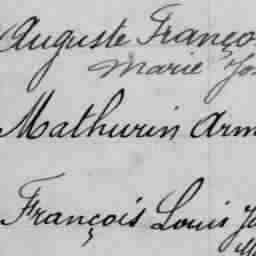 Auguste Franço
Marie Jo
Mathurin Arm
François Louis Ja